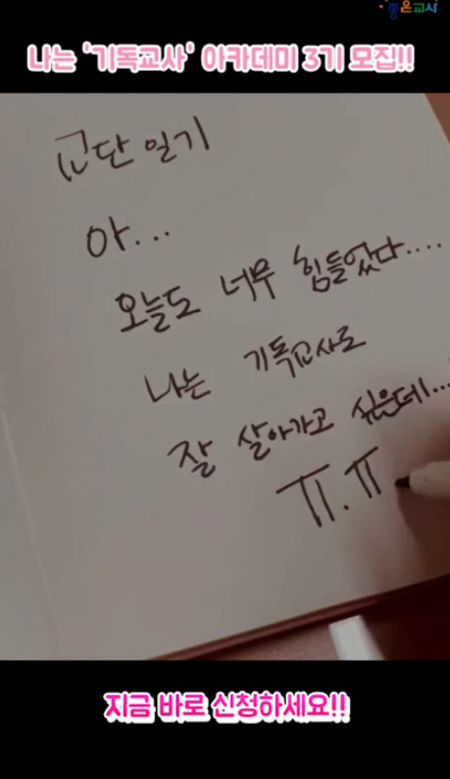 좋은교사
나는 '기독교사' 아카데미 3기 모집!!
교단 일기
아...
오늘도 너무 힘들었다....
나는 기독교사로
잘 살아가고 싶은데...
ㅠ.ㅠ
지금 바로 신청하세요!!